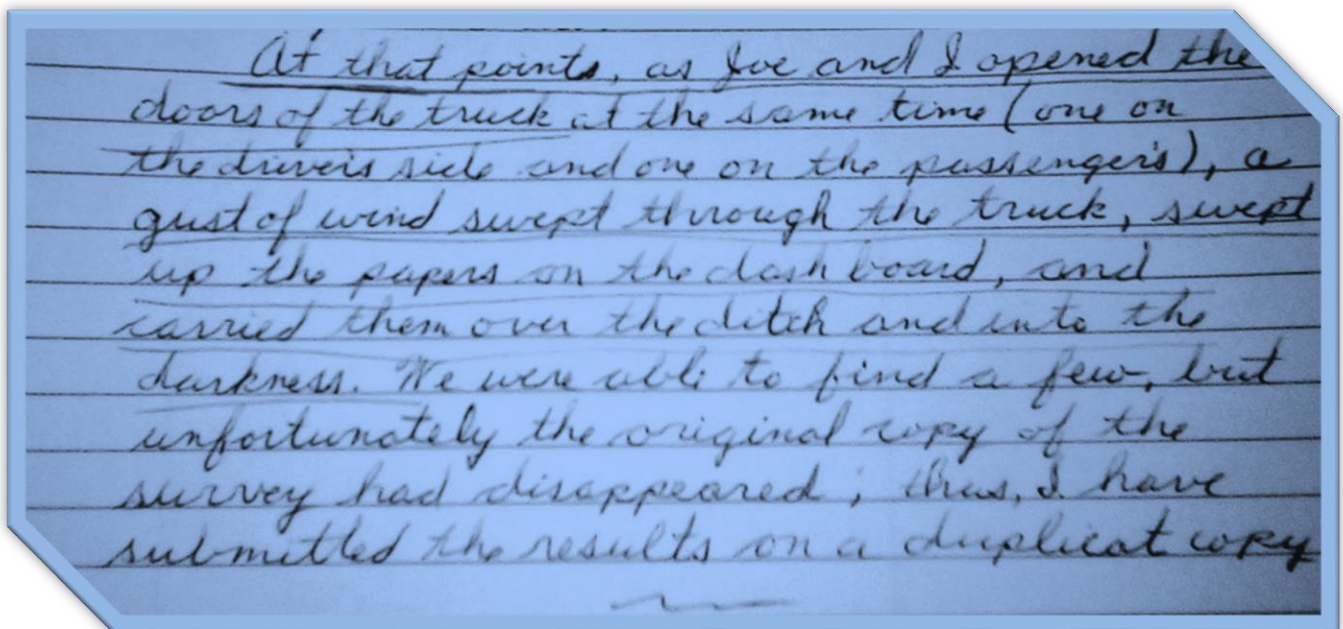 At that points, as Joe and I opened the
doors of the truck at the same time (one on
the driver's side and one on the passenger's), a
gust of wind swept through the truck, swept
up the papers on the dash board, and
carried them over the ditch and into the
darkness. We were able to find a few, but
unfortunately the original copy of the
survey had disappeared; thus, I have
submitted the results on a duplicat copy